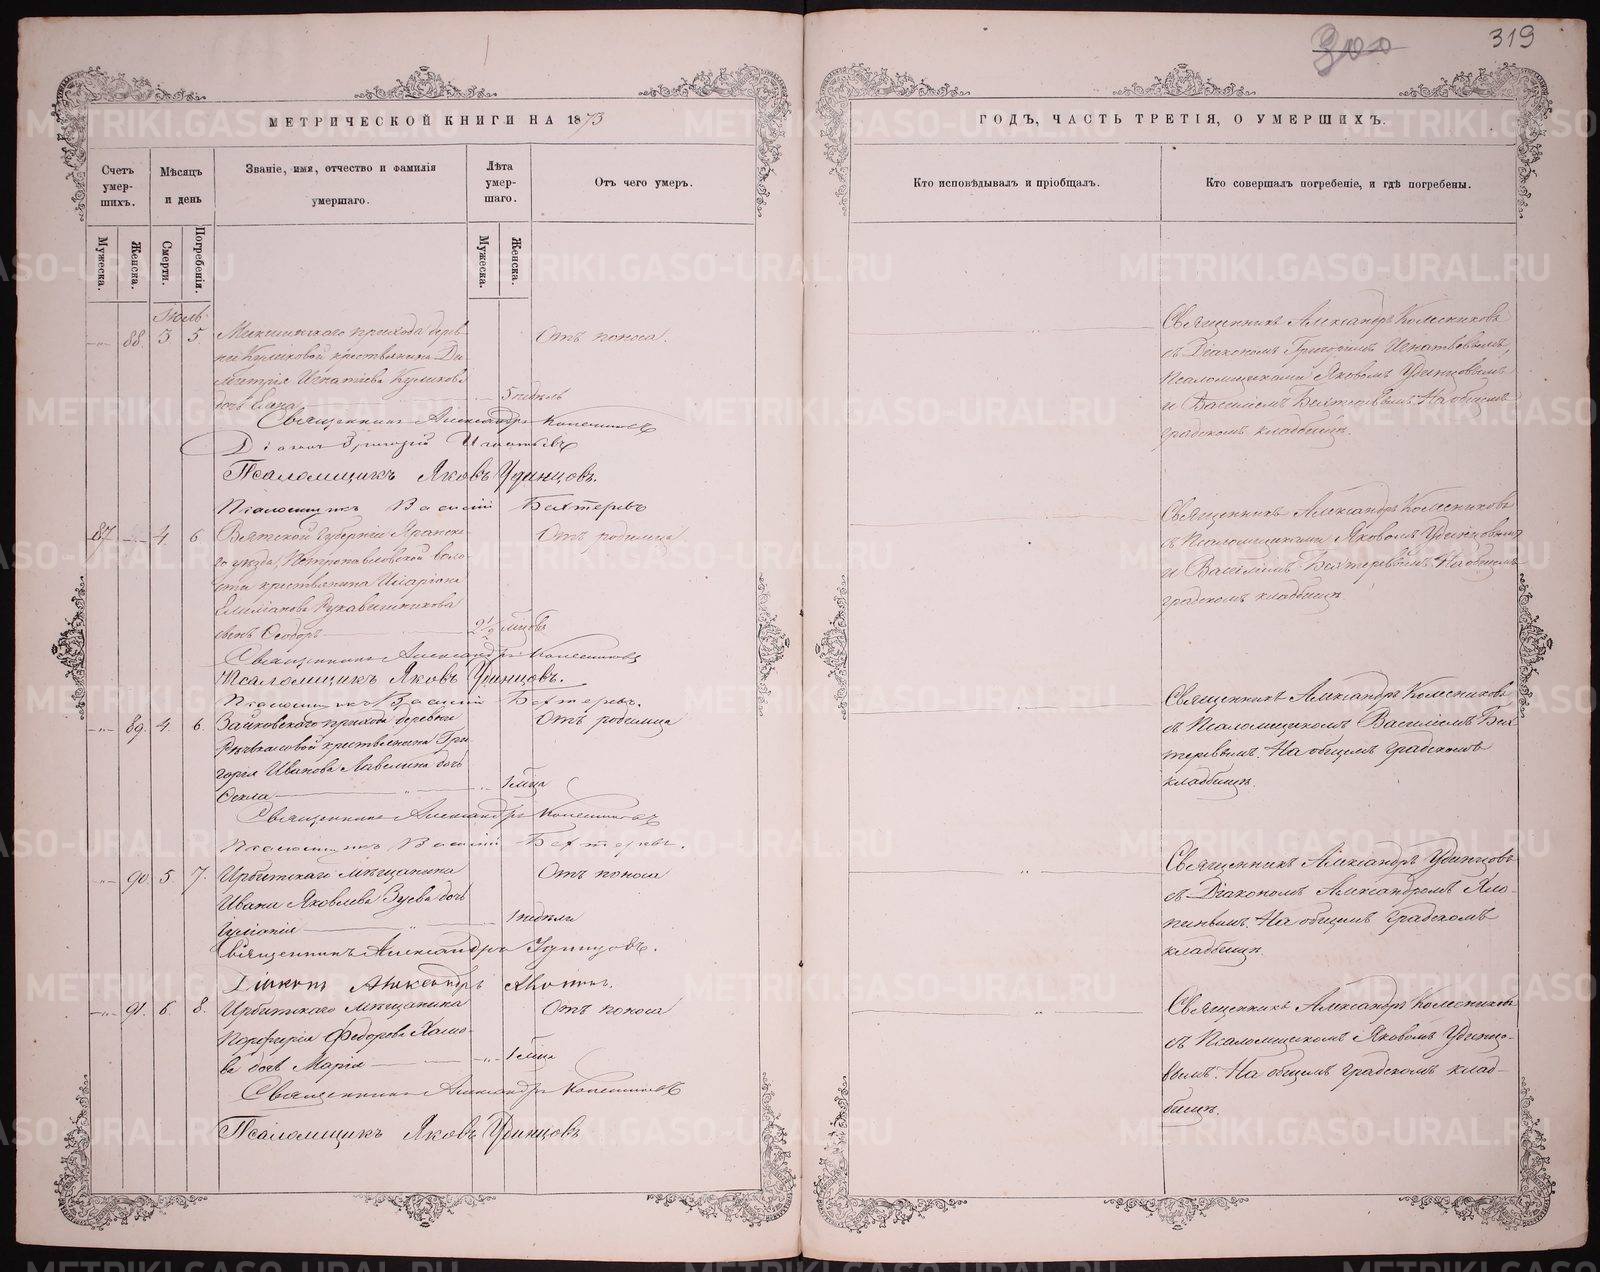 300
319
МЕТРИЧЕСКОЙ КНИГИ НА 1873
ГОДЪ, ЧАСТЬ ТРЕТІЯ, О УМЕРШИХЪ.
Счетъ умер-шихъ.
Мѣсяцъ и день
Званіе, имя, отчество и фамилія умершаго.
Лѣта умер-шаго.
Отъ чего умеръ.
Кто исповѣдывалъ и пріобщалъ.
Кто совершалъ погребеніе, и гдѣ погребены.
Мужеска.
Женска.
Смерти.
Погребенія.
Мужеска.
Женска.
Іюль
88. 3 5
прихода дерев-
ни Куликовой крестьянина Ди-
митрія Игнатіева Куликова
дочь
5 недѣль
Отъ поноса.
Священникъ Александръ Колесниковъ
съ Діакономъ Григоріемъ Игнатьевымъ,
Псаломщиками Яковомъ Удинцовымъ
и Василіемъ Бехтеревымъ. На общемъ
градскомъ кладбищѣ.
Священникъ Александръ Колесниковъ
Діаконъ Григорій Игнатьевъ
Псаломщикъ Яковъ Удинцовъ.
Псаломщикъ Василій Бехтеревъ
87 4. 6
Вятской Губерніи Яранска-
го уѣзда, Петропавловской воло-
сти крестьянина Иларіона
Емиліанова Рукавишникова
сынъ Ѳеодоръ
2½ мѣсяца
Отъ родимца
Священникъ Александръ Колесниковъ
съ Псаломщиками Яковомъ Удинцовымъ
и Василіемъ Бехтеревымъ. На общемъ
градскомъ кладбищѣ.
Священникъ Александръ Колесниковъ
Псаломщикъ Яковъ Удинцовъ.
Псаломщикъ Василій Бехтеревъ.
89. 4. 6.
Зайковскаго прихода деревни
крестьянина Гри-
горія Иванова дочь
Ѳекла
1 мѣсяца
Отъ родимца
Священникъ Александръ Колесниковъ
съ Псаломщикомъ Василіемъ Бех-
теревымъ. На общемъ градскомъ
кладбищѣ.
Священникъ Александръ Колесниковъ
Псаломщикъ Василій Бехтеревъ.
90. 5. 7.
Ирбитскаго мѣщанина
Ивана Яковлева Зуева дочь
Іуліанія
1 недѣли
Отъ поноса
Священникъ Александръ Удинцовъ
съ Діакономъ Александромъ
На общемъ градскомъ
кладбищѣ.
Священникъ Александръ Удинцовъ.
Діаконъ Александръ
91. 6. 8.
Ирбитскаго мѣщанина
Порфирія Федорова
дочь Марія
1 мѣсяца
Отъ поноса
Священникъ Александръ Колесниковъ
съ Псаломщикомъ Яковомъ Удинцо-
вымъ. На общемъ градскомъ клад-
бищѣ.
Священникъ Александръ Колесниковъ
Псаломщикъ Яковъ Удинцовъ
METRIKI.GASO-URAL.RU